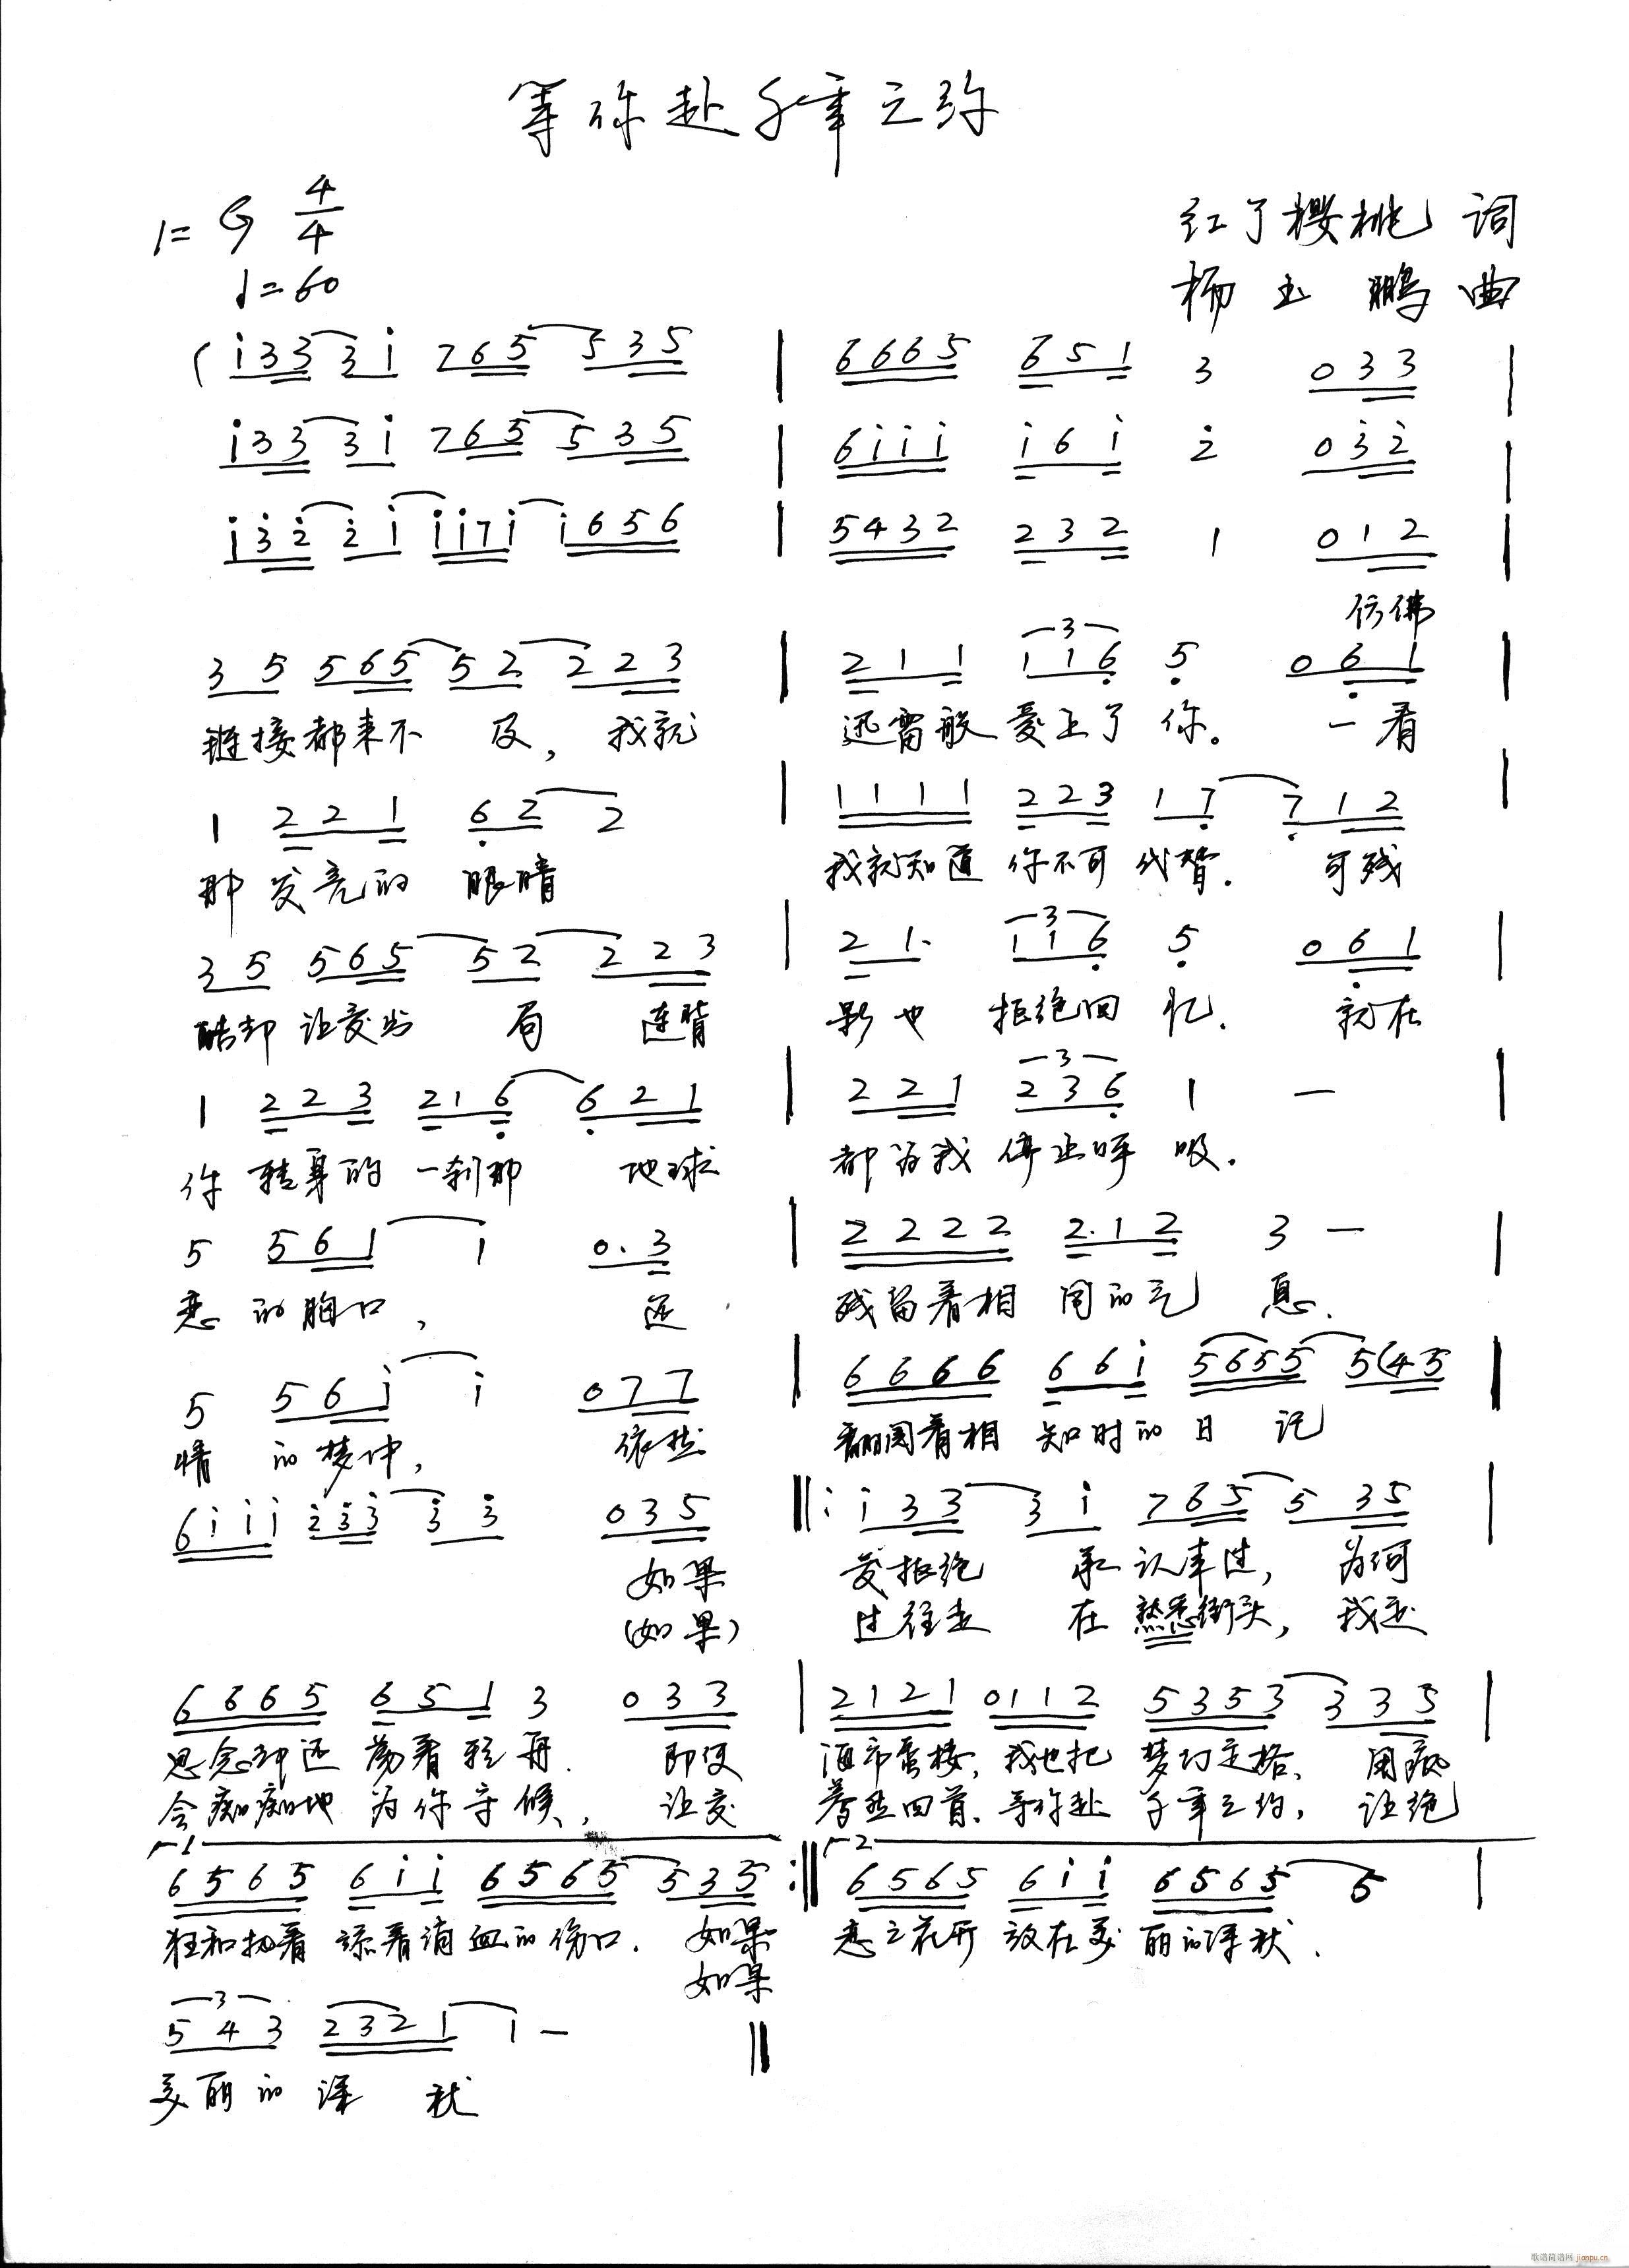 等你赴千年之约
1=G 4/4
♩=60
红了樱桃 词
杨玉鹏 曲
( i 3 3 3 i 7 6 5 5 3 5 | 6 6 6 5 6 5 1 3 0 3 3 |
i 3 3 3 i 7 6 5 5 3 5 | 6 i i i i 6 i 2 0 3 2 |
i 3 2 2 i i i 7 i i 6 5 6 | 5 4 3 2 2 3 2 1 0 1 2 |
仿佛
3 5 5 6 5 5 2 2 2 3 | 2 1 1 1 1 6 5 0 6 1 |
链接都来不 及, 我就 迅雷般 爱上了 你。 一看
1 2 2 1 6 2 2 | 1 1 1 1 2 2 3 1 7 7 1 2
那 发亮的 眼睛 我就知道 你不可 代替. 可残
3 5 5 6 5 5 2 2 2 3 | 2 1. 1 1 6 5 0 6 1 |
酷却 让爱出 局 连背 影也 拒绝回 忆. 就在
1 2 2 3 2 1 6 6 2 1 | 2 2 1 2 3 6 1 — |
你 转身的 一刹那 地球 都为我 停止呼 吸.
5 5 6 1 1 0. 3 | 2 2 2 2 2. 1 2 3 — |
恋 的胸口, 还 残留着相 同的气 息.
5 5 6 i i 0 7 7 | 6 6 6 6 6 6 i 5 6 5 5 5 (4 5 |
情 的梦中, 依然 翻阅着相 知时的 日 记
6 i i i 2 3 3 3 3 0 3 5 ‖: i 3 3 3 i 7 6 5 5 3 5 |
如果 爱拒绝 承 认来过, 为何
(如果) 过往走 在 熟悉街头, 我还
6 6 6 5 6 5 1 3 0 3 3 | 2 1 2 1 0 1 1 2 5 3 5 3 3 3 5 |
思念却还 荡着轻舟. 即使 海市蜃楼, 我也把 梦幻定格, 用痴
会痴痴地 为你守 候, 让爱 蓦然回首. 等你赴 千年之约, 让绝
1 2
6 5 6 5 6 i i 6 5 6 5 5 3 5 :‖ 6 5 6 5 6 i i 6 5 6 5 5 |
狂和执着 舔着滴 血的伤口. 如果 恋之花开 放在美 丽的深秋.
如果
5 4 3 2 3 2 1 1 — ‖
美丽的 深 秋
歌谱简谱网 jianpu.cn